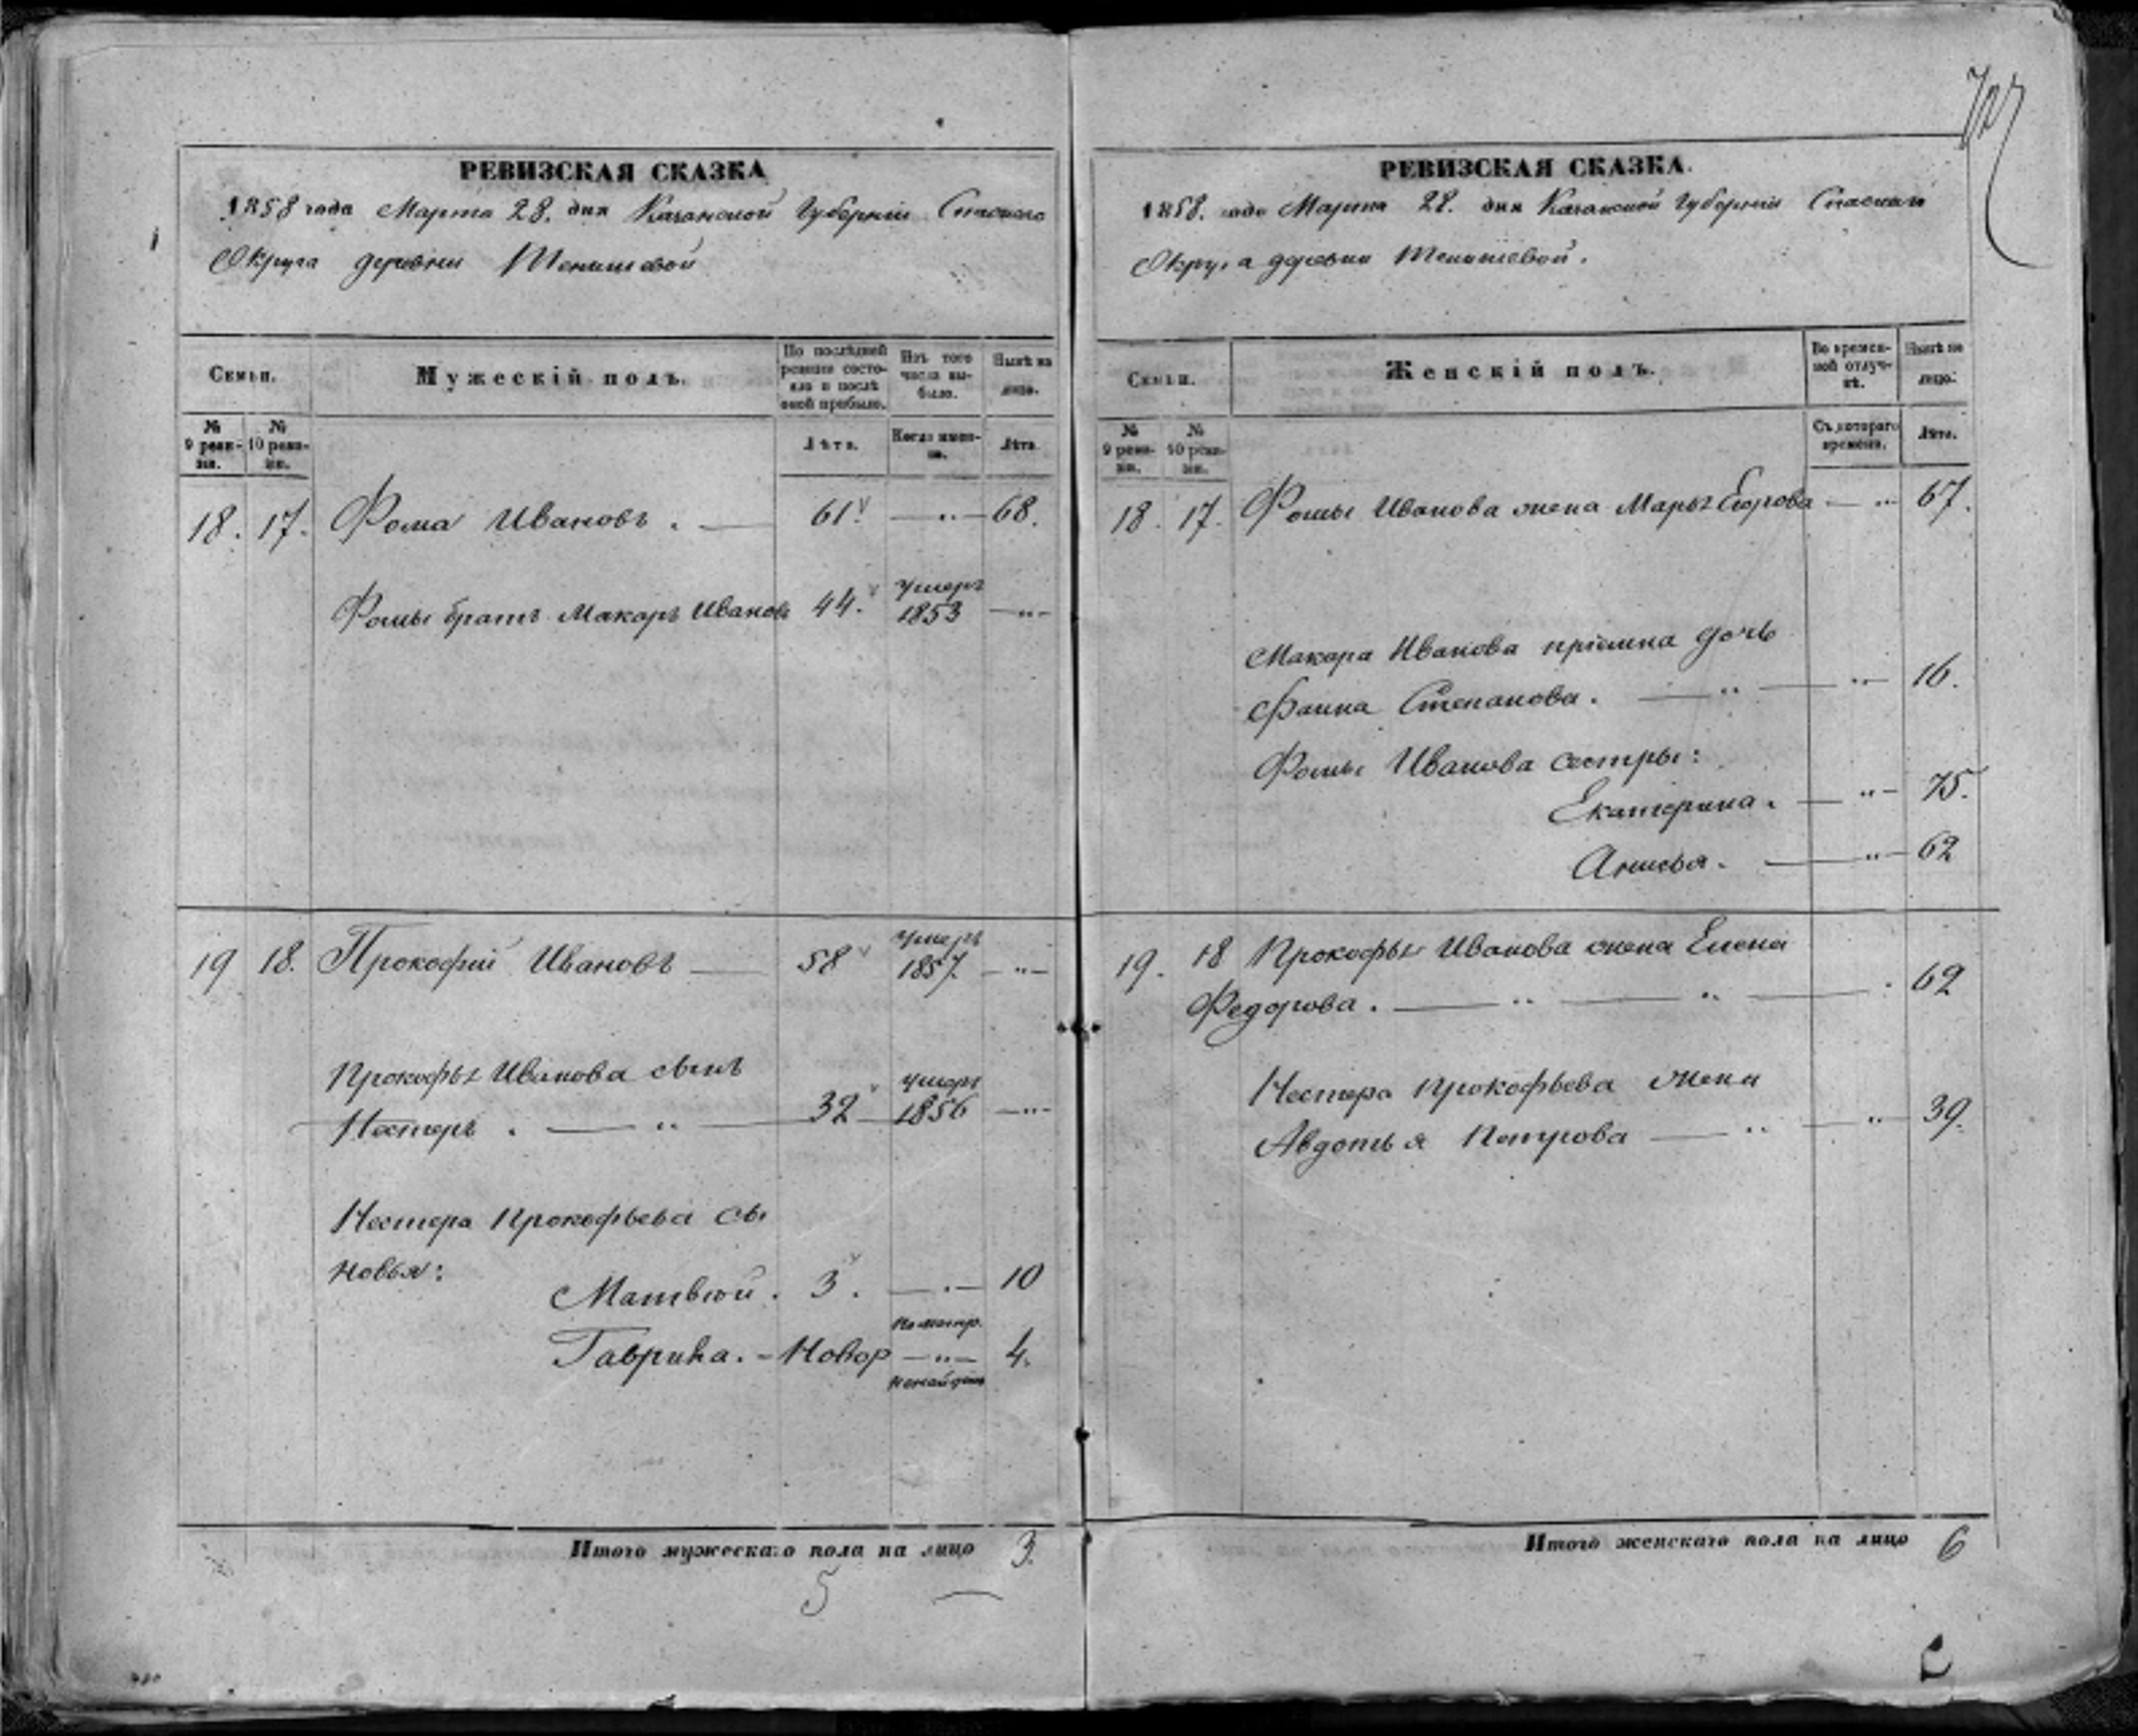 727
РЕВИЗСКАЯ СКАЗКА
1858 года Марта 28. дня Казанской Губерніи Спаскаго
Округа деревни Тенишевой
Семьи.
Мужескій полъ.
По послѣдней ревизіи состояло и послѣ оной прибыло.
Изъ того числа выбыло.
Нынѣ на лицо.
№ 9 ревизіи.
№ 10 ревизіи.
Лѣта.
Когда именно.
Лѣта.
18. 17. Фома Ивановъ. — 61. — „ — 68.
Фомы братъ Макаръ Ивановъ 44. Умеръ 1853 — „ —
19 18. Прокофій Ивановъ — 58 Умеръ 1857 — „ —
Прокофья Иванова сынъ
Нестеръ. — „ — 32 Умеръ 1856 — „ —
Нестера Прокофьева сы
новья:
Матвей. 3. — „ — 10
Гаврила. - Новор — „ — 4.
Итого мужескаго пола на лицо 3.
5
РЕВИЗСКАЯ СКАЗКА.
1858. года Марта 28. дня Казанской Губерніи Спаскаго
Округа деревни Тенишевой.
Семьи.
Женскій полъ.
Во временной отлучкѣ.
Нынѣ на лицо.
№ 9 ревизіи.
№ 10 ревизіи.
Съ котораго времени.
Лѣта.
18. 17. Фомы Иванова жена Марья Егорова — „ 67.
Макара Иванова пріемна дочь
Фаина Степанова. — „ — „ — 16.
Фомы Иванова сестры:
Екатерина. — „ — 75.
Анисья. — „ — 62
19. 18 Прокофья Иванова жена Елена
Федорова. — „ — „ — 62
Нестера Прокофьева жена
Авдотья Петрова — „ — „ — 39.
Итого женскаго пола на лицо 6